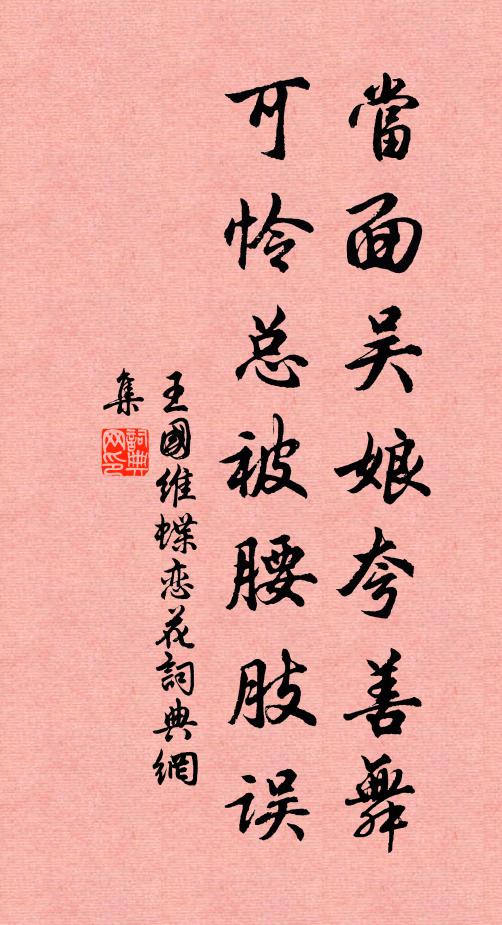 當面吴娘夸善舞
可怜总被腰肢误
王國维蝶恋花詞典網
集
詞典
网印